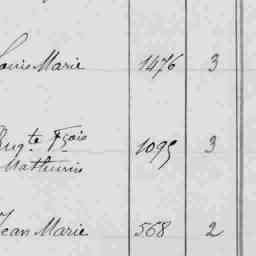 Louis Marie 1476 3
Aug.te Fçois 1095 3
Mathurin
Jean Marie 568 2